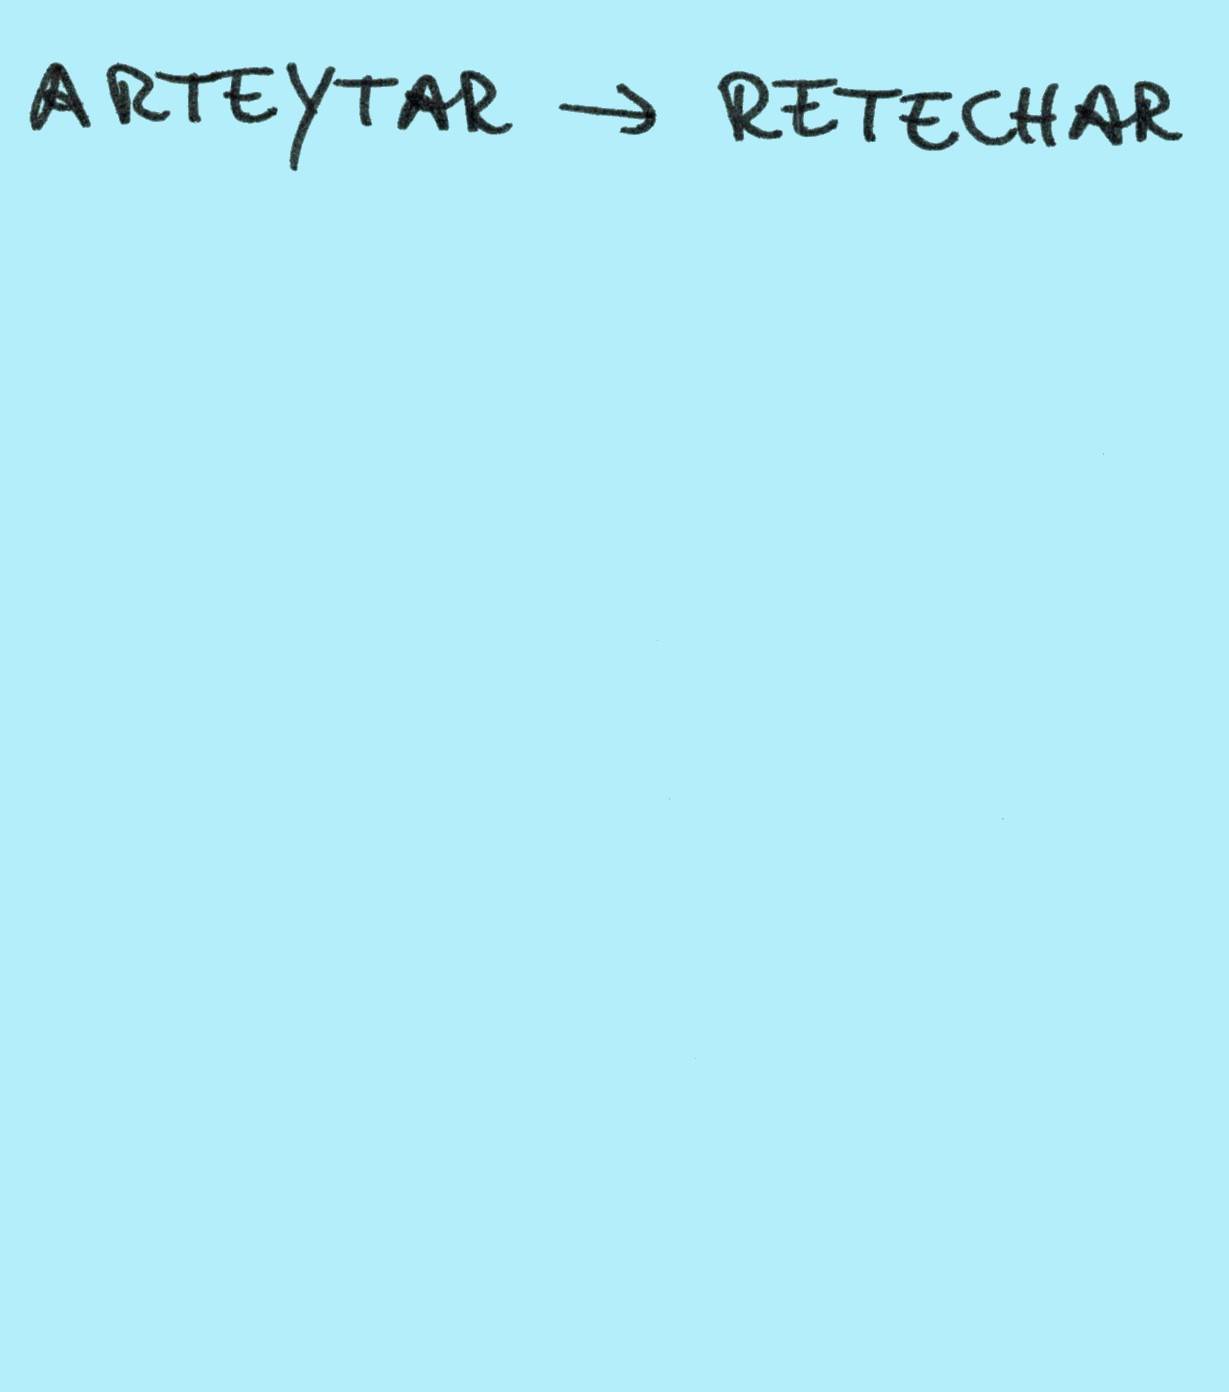 ARTEYTAR → RETECHAR